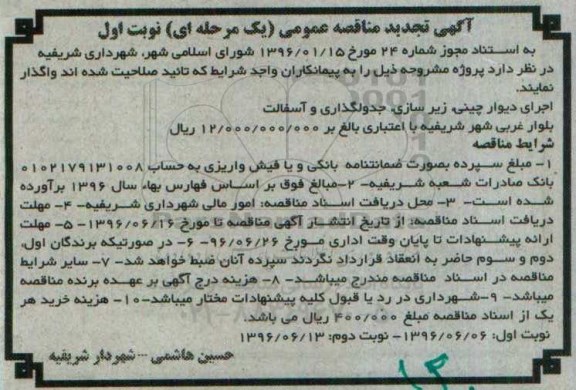 آگهی تجدید مناقصه عمومی (یک مرحله ای) نوبت اول
به استناد مجوز شماره ۲۴ مورخ ۱۳۹۶/۰۱/۱۵ شورای اسلامی شهر، شهرداری شریفیه
در نظر دارد پروژه مشروحه ذیل را به پیمانکاران واجد شرایط که تائید صلاحیت شده اند واگذار
نمایند.
اجرای دیوار چینی، زیر سازی، جدولگذاری و آسفالت
بلوار غربی شهر شریفیه با اعتباری بالغ بر ۱۲/۰۰۰/۰۰۰/۰۰۰ ریال
شرایط مناقصه
۱- مبلغ سپرده بصورت ضمانتنامه بانکی و یا فیش واریزی به حساب ۰۱۰۲۱۷۹۱۳۱۰۰۸
بانک صادرات شعبه شریفیه- ۲-مبالغ فوق بر اساس فهارس بهاء سال ۱۳۹۶ برآورده
شده است- ۳- محل دریافت اسناد مناقصه: امور مالی شهرداری شریفیه- ۴- مهلت
دریافت اسناد مناقصه: از تاریخ انتشار آگهی مناقصه تا مورخ ۱۳۹۶/۰۶/۱۶- ۵- مهلت
ارائه پیشنهادات تا پایان وقت اداری مورخ ۹۶/۰۶/۲۶- ۶- در صورتیکه برندگان اول،
دوم و سوم حاضر به انعقاد قرارداد نگردند سپرده آنان ضبط خواهد شد- ۷- سایر شرایط
مناقصه در اسناد مناقصه مندرج میباشد- ۸- هزینه درج آگهی بر عهده برنده مناقصه
میباشد- ۹-شهرداری در رد یا قبول کلیه پیشنهادات مختار میباشد-۱۰- هزینه خرید هر
یک از اسناد مناقصه مبلغ ۴۰۰/۰۰۰ ریال می باشد.
نوبت اول: ۱۳۹۶/۰۶/۰۶- نوبت دوم: ۱۳۹۶/۰۶/۱۳
حسین هاشمی --- شهردار شریفیه